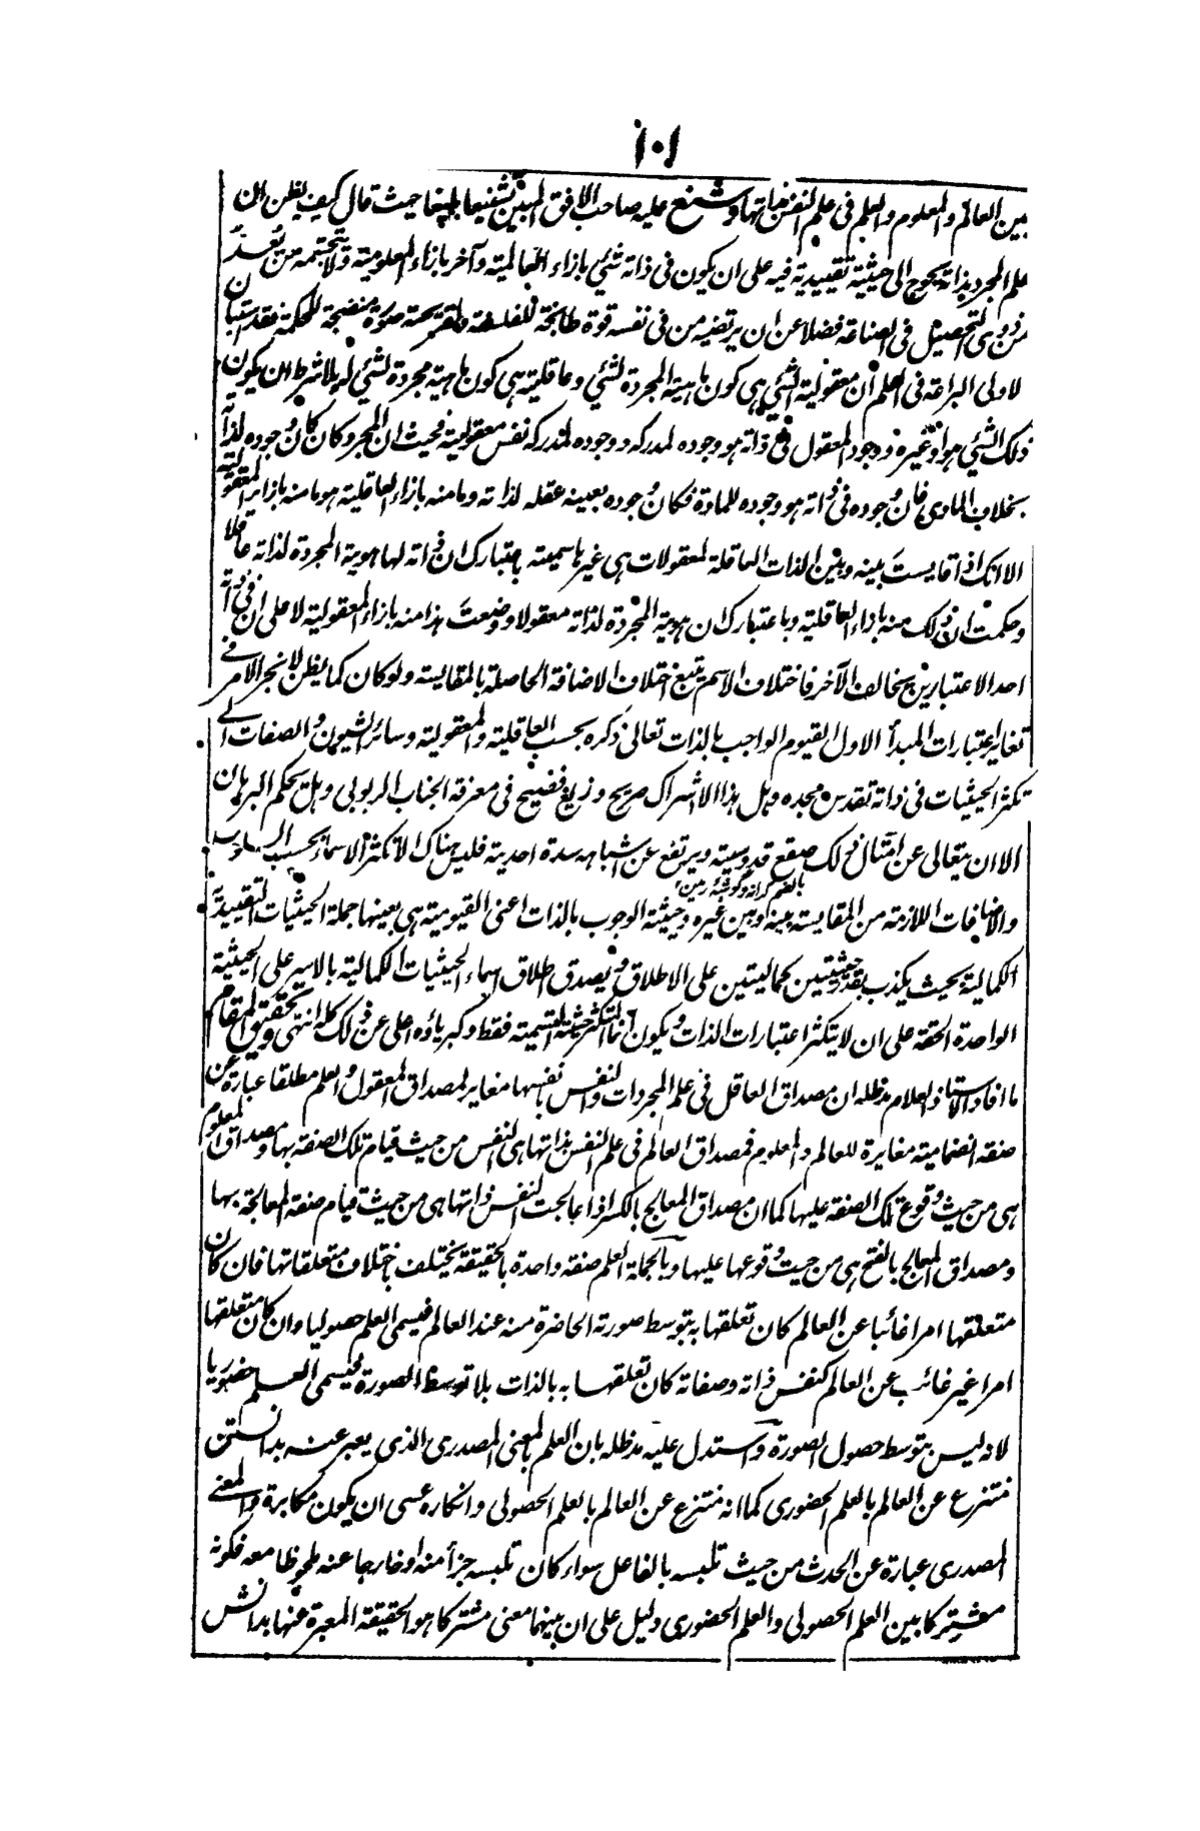 ١٠١
بين العالم والمعلوم والعلم فى علم النفس بذاتها وشنع عليه صاحب الافق المبين تشنيعا بليغا حيث قال كيف يظن ان
علم المجرد بذاته يحوج الى حيثية تقييدية فيه على ان يكون فى ذاته شئ بازاء العالمية وآخر بازاء المعلومية ولا يتجشمه من يعد
من ذوى التحصيل فى الصناعة فضلا عن ان يرتضيه من فى نفسه قوة طابخة للفلسفة وقريحته صورة منضجة للحكمة فقد استبان
لاولى البراعة فى العلم ان معقولية الشئ هى كون ماهيته المجردة لشئ وعاقليته هى كون ماهية مجردة لشئ له بلا شرط ان يكون
ذلك الشئ هو او غيره ووجود المعقول فى ذاته هو وجوده لمدركه ووجوده لمدركه نفس معقوليته فحيث ان المجرد كان كان وجوده لذاته
بخلاف المادى فان وجوده فى ذاته هو وجوده للمادة فكان وجوده بعينه عقله لذاته وما منه بازاء العاقلية هو ما منه بازاء المعقولية
الا انك اذا قايست بينه وبين الذات العاقلة لمعقولات هى غيرها سميته باعتبارك ان ذاته لها هوية المجردة لذاته عاقلا
وحكمت ان ذلك منه بازاء العاقلية وباعتبارك ان هويته المجردة لذاته معقولا ووضعت هذا منه بازاء المعقولية لا على ان فى ذاته
احد الاعتبارين يخالف الآخر فاختلاف الاسم يتبع اختلاف الاضافة الحاصلة بالمقايسة ولو كان كما يظن لانجر الامر فى
تغاير اعتبارات المبدأ الاول القيوم الواجب بالذات تعالى ذكره بحسب العاقلية والمعقولية وسائر الشيون والصفات الى
تكثر الحيثيات فى ذاته تقدس مجده وهل هذا الا اشراك صريح وزيغ فضيح فى معرفة الجناب الربوبى وهل يحكم البرهان
الا ان يتعالى عن امثال ذلك صقع قدوسيته ويرتفع عن اشباهه سدة احديته فليس هناك الا تكثر الاسماء بحسب السلوب
بالضم كرانه وگوشه زمين
والاضافات اللازمة من المقايسة بينه وبين غيره وحيثية الوجوب بالذات اعنى القيومية هى بعينها جملة الحيثيات التقييدية
الكمالية بحيث يكذب بقدر حيثيتين كماليتين على الاطلاق ويصدق اطلاق اسماء الحيثيات الكمالية بالاسر على الحيثية
الواحدة الحقة على ان لا يتكثر اعتبارات الذات ويكون انما التكثر حيثية التسمية فقط وكبرياؤه اعلى عن ذلك كله انتهى وتحقيق المقام
ما افاد الاستاذ العلام مد ظله ان مصداق العاقل فى علم المجردات والنفس بانفسها مغاير لمصداق المعقول والعلم مطلقا عبارة عن
صفة انضمامية مغايرة للعالم والمعلوم فمصداق العالم فى علم النفس بذاتها هى النفس من حيث قيام تلك الصفة بها ومصداق المعلوم
هى من حيث وقوع تلك الصفة عليها كما ان مصداق المعالج بالكسر اذا عالجت النفس ذاتها هى من حيث قيام صفة المعالجة بها
ومصداق المعالج بالفتح هى من حيث وقوعها عليها وبالجملة العلم صفة واحدة بالحقيقة يختلف باختلاف متعلقاتها فان كان
متعلقها امرا غائبا عن العالم كان تعلقها به بتوسط صورته الحاضرة منه عند العالم فيسمى العلم حصوليا وان كان متعلقها
امرا غير غائب عن العالم كنفس ذاته وصفاته كان تعلقها به بالذات بلا توسط الصورة فيسمى العلم حضوريا
لانه ليس بتوسط حصول الصورة واستدل عليه مد ظله بان العلم بالمعنى المصدرى الذى يعبر عنه بدانستن
منتزع عن العالم بالعلم الحضورى كما انه منتزع عن العالم بالعلم الحصولى وانكاره عسى ان يكون مكابرة والمعنى
المصدرى عبارة عن الحدث من حيث تلبسه بالفاعل سواء كان تلبسه جزأ منه او خارجا عنه ملحوظا معه فكونه
مشتركا بين العلم الحصولى والعلم الحضورى دليل على ان بينهما معنى مشتركا هو الحقيقة المعبرة عنها بدانش